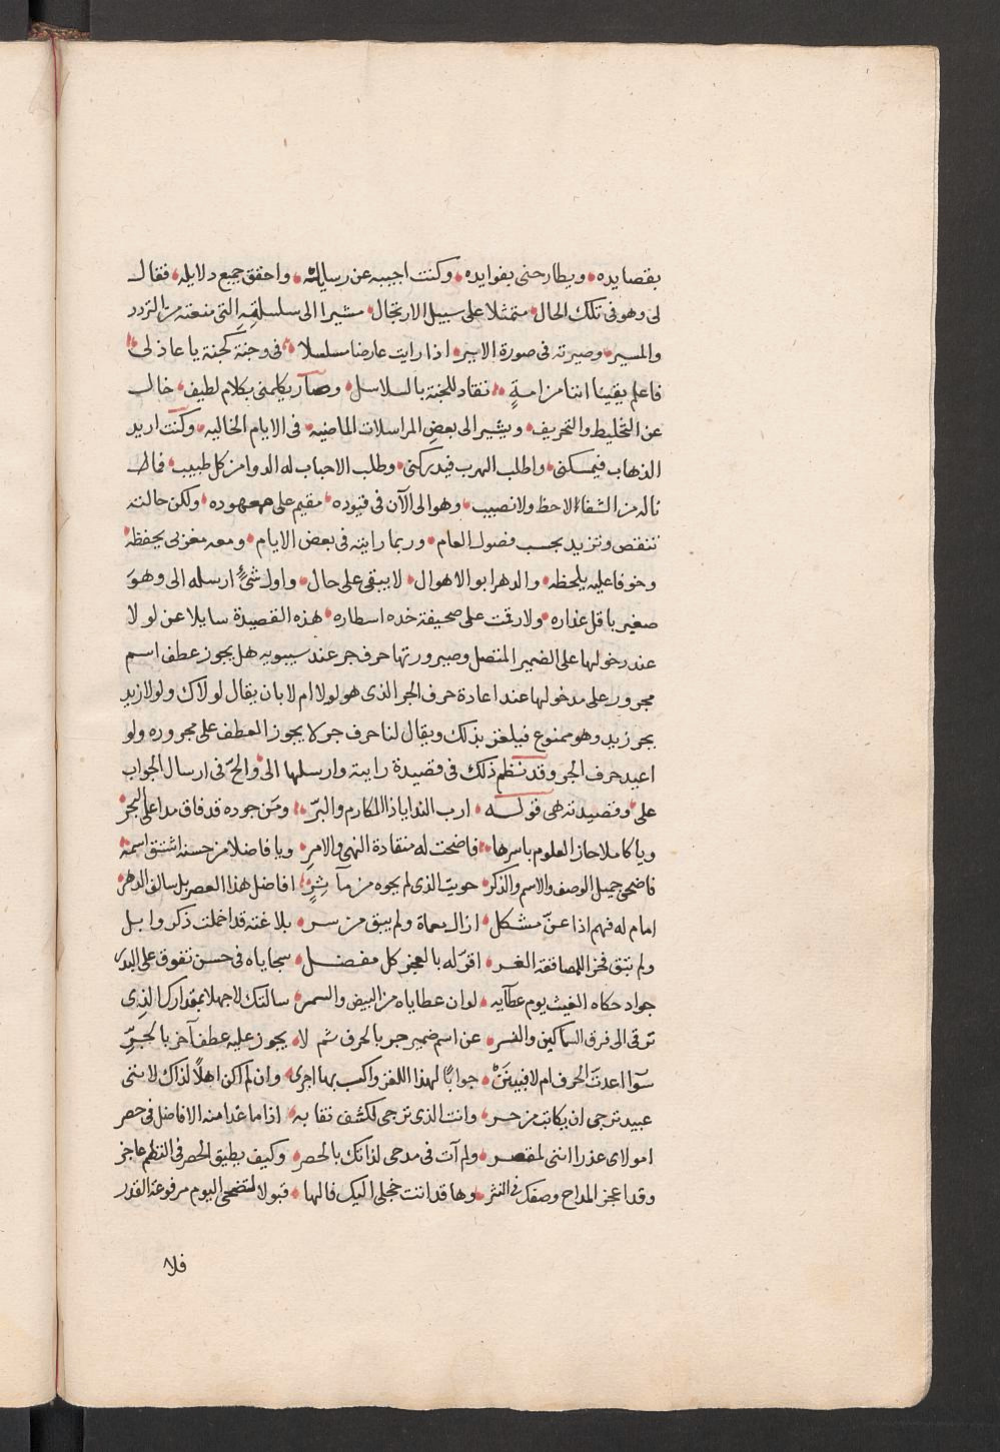 بقصايده ويطارحنى بفوايده وكنت اجيبه عن رسايله واحقق جميع دلايله فقال
لى وهو فى تلك الحال متمثلا على سبيل الارتجال مشيرا الى سلسلته التى منعته من التردد
والمسير وصيرته فى صورة الاسير اذا رايت عارضا مسلسلا فى وجنة كجنة يا عاذلى
فاعلم يقينا اننا من امةٍ تقاد للجنة بالسلاسل وصار يكلمنى بكلام لطيف خال
عن التخليط والتحريف ويشير الى بعض المراسلات الماضيه فى الايام الخاليه وكنت اريد
الذهاب فيمسكنى واطلب الهرب فيدركنى وطلب الاحباب له الدوا من كل طبيب فما
ناله من الشفاء الا حظ ولا نصيب وهو الى الآن فى قيوده مقيم على معهوده ولكن حالته
تنقص وتزيد بحسب فصول العام وربما رايته فى بعض الايام ومعه مغربى يحفظه
وخوفا عليه يلحظه والدهر ابو الاهوال لا يبقى على حال واول شئ ارسله الى وهو
صغير باقل عذاره ولا رقمت على صحيفة خده اسطاره هذه القصيدة سايلا عن لولا
عند دخولها على الضمير المتصل وصيرورتها حرف جر عند سيبويه هل يجوز عطف اسم
مجرور على مدخولها عند اعادة حرف الجر الذى هو لولا ام لا بان يقال لولاك ولولا زيد
بجر زيد وهو ممنوع فيلغز بذلك ويقال لنا حرف جر لا يجوز العطف على مجروره ولو
اعيد حرف الجر وقد نظم ذلك فى قصيدة رايية وارسلها الى والحّ فى ارسال الجواب
على وقصيدته هى قوله ارب الندا يا ذا المكارم والبرّ ومن جوده قد فاق مدا على البحر
ويا كاملا حاز العلوم باسرها فاضحت له منقادة النهى والامر ويا فاضلا من حسنه اشتق اسمه
فاضحى جميل الوصف والاسم والذكر حويت الذى لم يحوه من مآثرٍ افاضل هذا العصر بل سالف الدهر
امام له فهم اذا عنّ مشكل ازال معماة ولم يبق من سر بلاغته قد اخملت ذكر وايل
ولم تبق فخرا للمصاقعة الغر اقر له بالعجز كل مفضل سجاياه فى حسن تفوق على البدر
جواد حكاه الغيث يوم عطآيه لو ان عطاياه من البيض والسمر سالتك لا جهلا بمقدارك الذى
ترقى الى فرق السماكين والنسر عن اسم ضمير جر بالحرف ثم لا يجوز عليه عطف آخر بالجرِّ
سوا اعدت الحرف ام لا فبينن جوابًا لهذا اللغز واكسب بها اجرى وان لم اكن اهلًا لذاك لاننى
عبيد ترجى ان يكاتب من حر وانت الذى ترجى لكشف نقابه اذا ما غدا منه الافاضل فى حصر
امولاى عذرا اننى لمقصر ولم آت فى مدحى لذاتك بالحصر وكيف يطيق الحصر فى النظم عاجز
وقد اعجز المداح وصفك فى النثر وها قد انت خجلى اليك فما لها قبولا لتضحى اليوم مرفوعة القدر
فلا